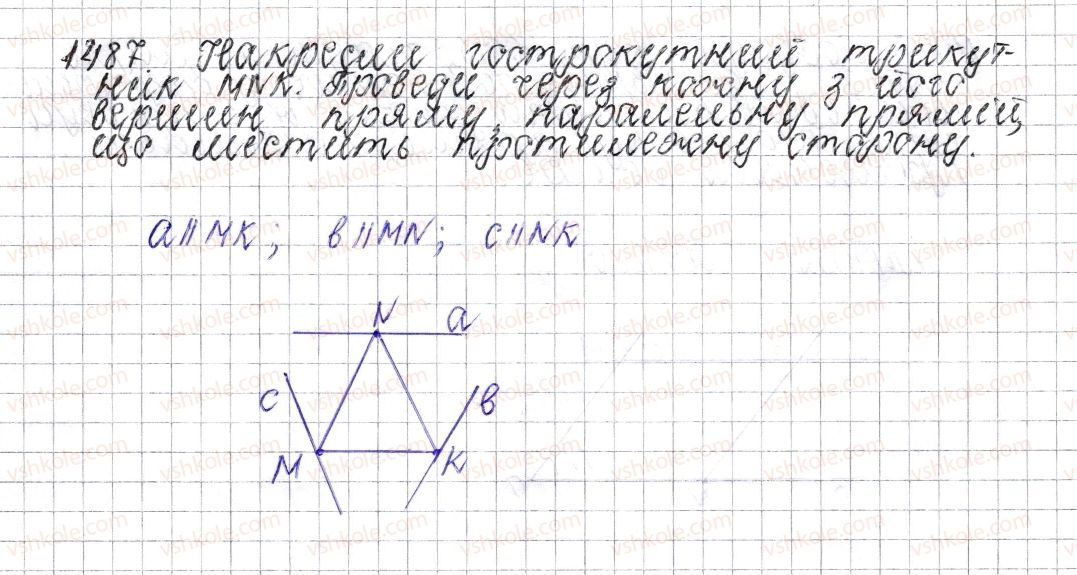 1487. Накресли гострокутний трикут-
ник MNK. Проведи через кожну з його
вершин пряму, паралельну прямій,
що містить протилежну сторону.
a||MK; в||MN; c||NK
N a
c в
M K